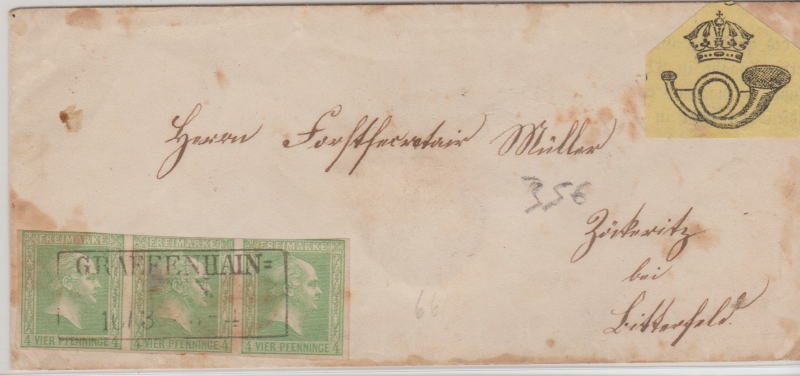 Herrn Forstsecretair Müller
356
Zöckeritz
bei
Bitterfeld.
66
FREIMARKE FREIMARKE FREIMARKE
GRAEFENHAIN=
4 VIER PFENNINGE 4 4 VIER PFENNINGE 4 4 VIER PFENNINGE 4